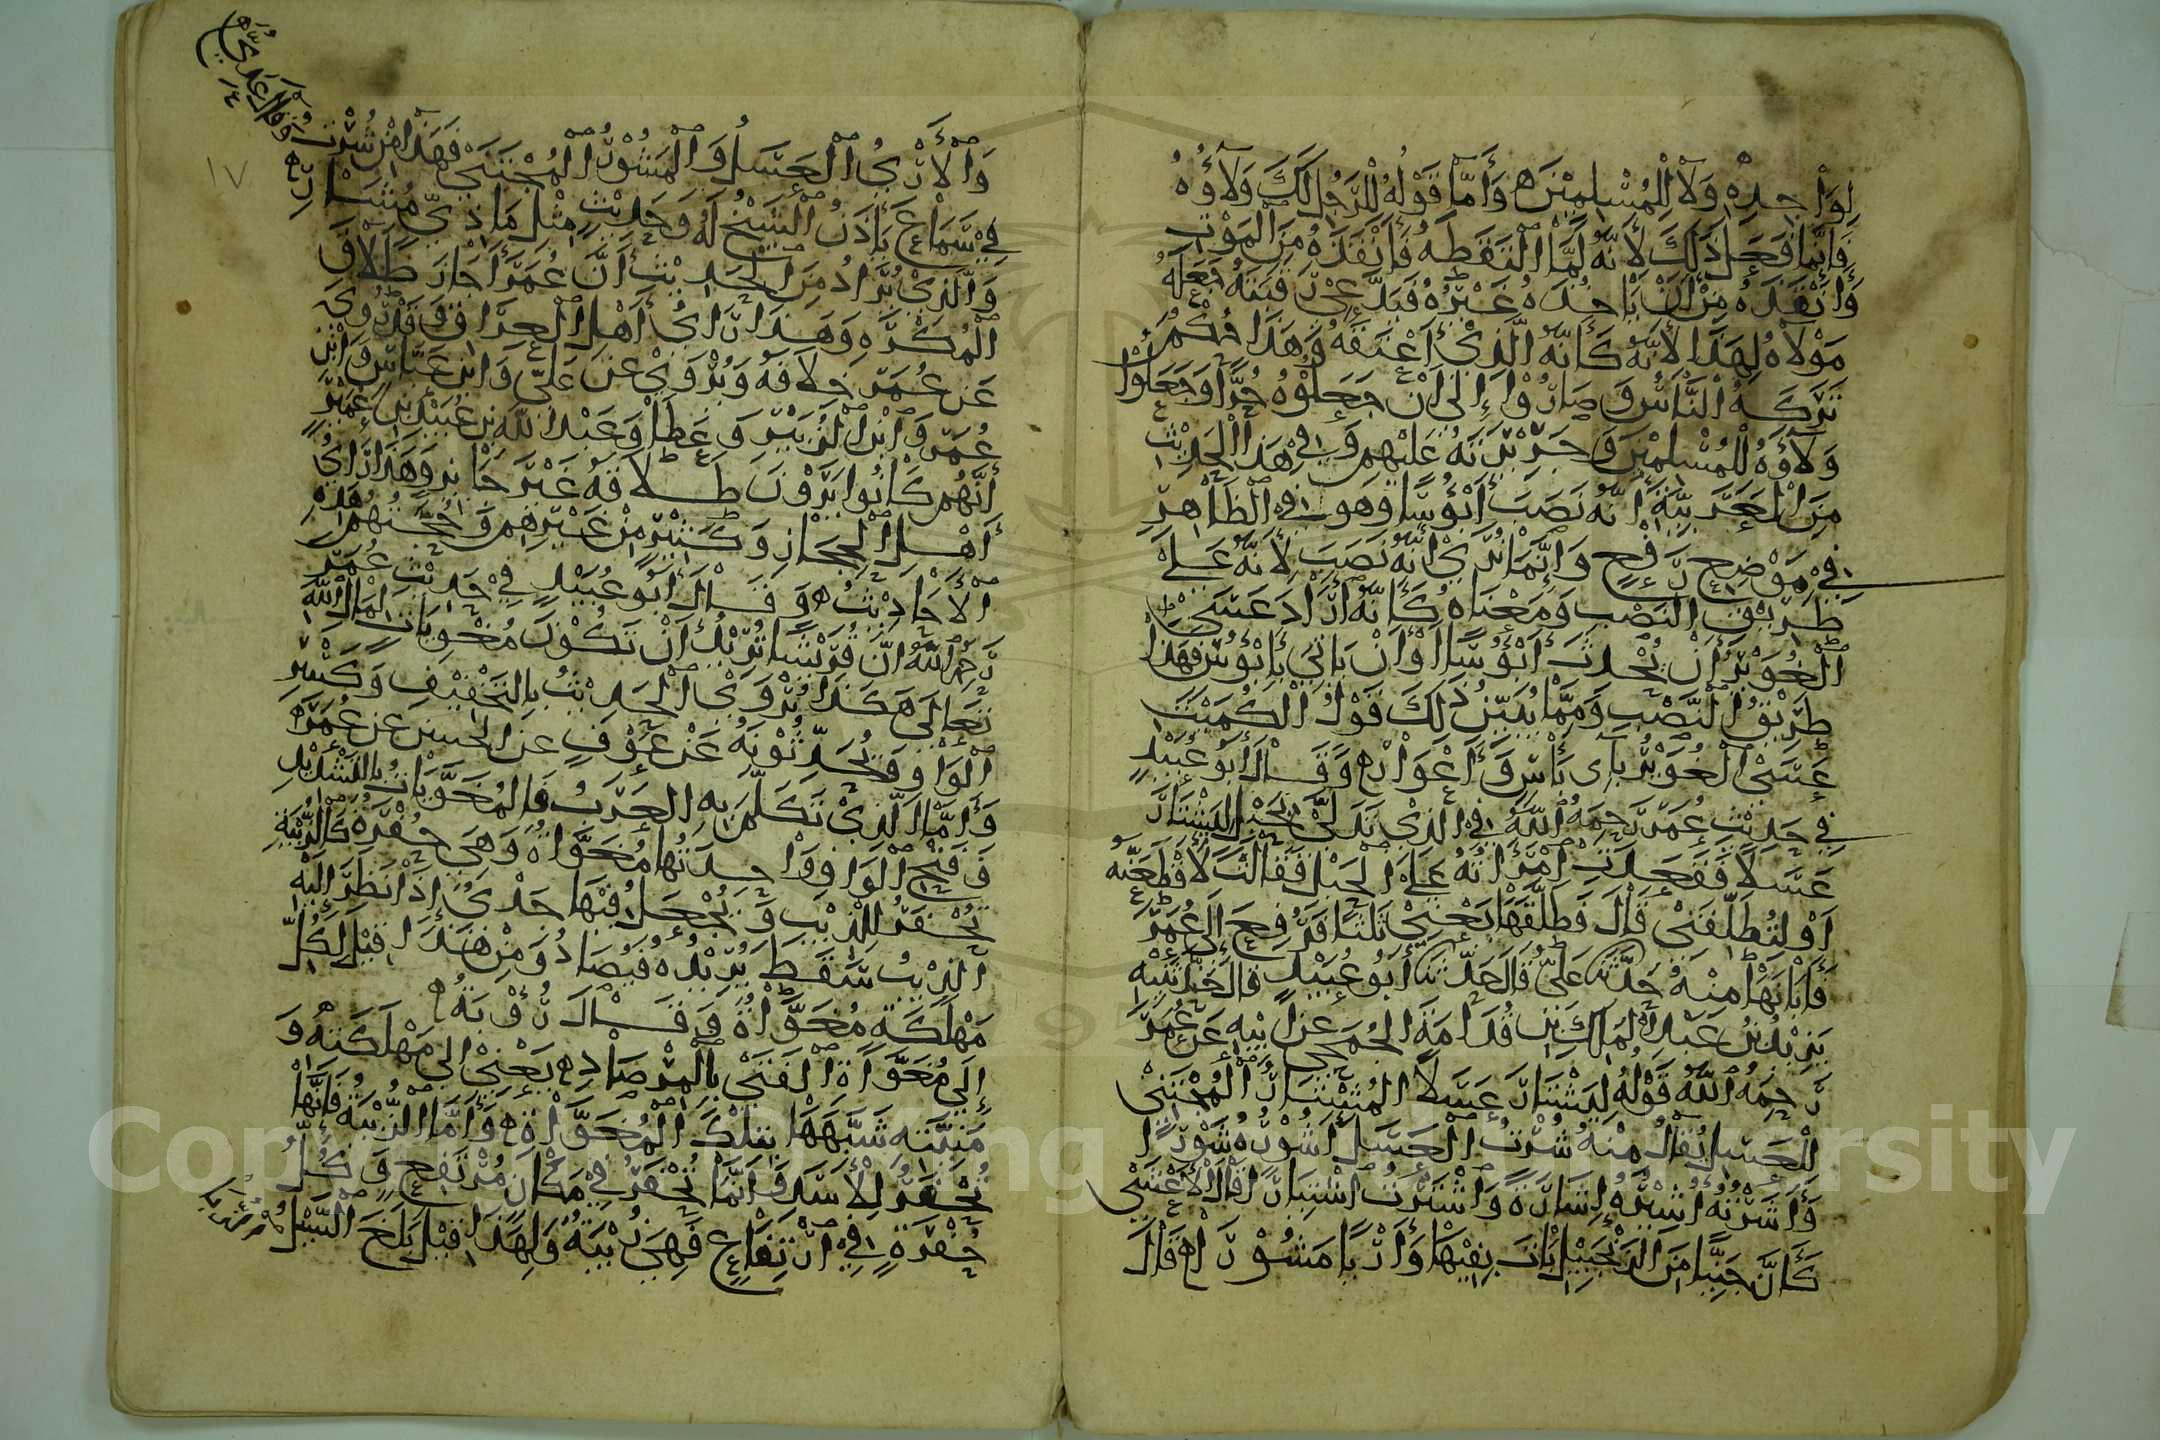 لِوَاحِدِهِ وَلَا لِلْمُسْلِمِينَ ه وَأَمَّا قَوْلُهُ لِلرَّجُلِ لَكَ وَلَاؤُهُ
فَإِنَّمَا فَعَلَ ذَلِكَ لِأَنَّهُ لَمَّا الْتَقَطَهُ فَأَنْقَذَهُ مِنَ الْمَوْتِ
وَأَنْقَذَهُ مِنْ أَنْ يَأْخُذَهُ غَيْرُهُ فَيَدَّعِيَ رَقَبَتَهُ جَعَلَهُ
مَوْلَاهُ لِهَذَا لِأَنَّهُ كَأَنَّهُ الَّذِي أَعْتَقَهُ وَهَذَا حُكْمٌ
تَرَكَهُ النَّاسُ وَصَارُوا إِلَى أَنْ جَعَلُوهُ حُرًّا وَجَعَلُوا
وَلَاؤَهُ لِلْمُسْلِمِينَ وَجَرِيرَتَهُ عَلَيْهِم وَفِي هَذَا الْحَدِيثِ
مِنَ الْعَرَبِيَّةِ أَنَّهُ نَصَبَ أَبْؤُسًا وَهُوَ فِي الظَّاهِرِ
فِي مَوْضِعِ رَفْعٍ وَإِنَّمَا نُرَى أَنَّهُ نَصَبَ لِأَنَّهُ عَلَى
طَرِيقِ النَّصْبِ وَمَعْنَاهُ كَأَنَّهُ أَرَادَ عَسَى
الْغُوَيْرُ أَنْ يُحْدِثَ أَبْؤُسًا أَوْ أَنْ يَأْتِيَ بِأَبْؤُسٍ فَهَذَا
طَرِيقُ النَّصْبِ وَمِمَّا يُبَيِّنُ ذَلِكَ قَوْلُ الْكُمَيْتِ
عَسَى الْغُوَيْرُ بِآبَاسٍ وَأَغْوَارٍ ه وَقَالَ أَبُو عُبَيْدٍ
فِي حَدِيثِ عُمَرَ رَحِمَهُ اللَّهُ فِي الَّذِي تَدَلَّى بِحَبْلٍ لِيَشْتَارَ
عَسَلًا فَقَعَدَتِ امْرَأَتُهُ عَلَى الْحَبْلِ فَقَالَتْ لَأَقْطَعَنَّهُ
أَوْ لَتُطَلِّقَنِّي قَالَ فَطَلَّقَهَا يَعْنِي ثَلَثًا فَرُفِعَ إِلَى عُمَرَ
فَأَبَانَهَا مِنْهُ حَدَّثَنَا عَلِيٌّ قَالَ حَدَّثَنَا أَبُو عُبَيْدٍ قَالَ حَدَّثَنِيهِ
يَزِيدُ بْنُ عَبْدِ الْمَلِكِ بْنِ قُدَامَةَ الْجُمَحِي عَنْ أَبِيهِ عَنْ عُمَرَ
رَحِمَهُ اللَّهُ قَوْلُهُ لِيَشْتَارَ عَسَلًا الْمُشْتَارُ الْمُجْتَنِي
لِلْعَسَلِ يُقَالُ مِنْهُ شُرْتُ الْعَسَلَ أَشُورُهُ شَوْرًا
وَأَشَرْتُهُ أُشِيرُهُ إِشَارَةً وَاشْتَرْتُ اشْتِيَارًا قَالَ الْأَعْشَى
كَأَنَّ جَنِيًّا مِنَ الزَّنْجَبِيلِ بَاتَ بِفِيهَا وَأَرْيًا مَشُورَا ه قَالَ
وَقَالَ عَدِيُّ
وَالْأَرْيُ الْعَسَلُ وَالْمَشُورُ الْمُجْتَنَى فَهَذَا مِنْ شُرْتُ
فِي سَمَاعٍ يَأْذَنُ الشَّيْخُ لَهُ وَحَدِيثٍ مِثْلِ مَاذِيٍّ مُشَارِ
وَالَّذِي يُرَادُ مِنَ الْحَدِيثِ أَنَّ عُمَرَ أَجَازَ طَلَاقَ
الْمُكْرَهِ وَهَذَا رَأْيُ أَهْلِ الْعِرَاقِ وَقَدْ رُوِيَ
عَنْ عُمَرَ خِلَافُهُ وَيُرْوَى عَنْ عَلِيٍّ وَابْنِ عَبَّاسٍ وَابْنِ
عُمَرَ وَابْنِ الزُّبَيْرِ وَعَطَا وَعَبْدِ اللَّهِ بْنِ عُبَيْدِ بْنِ عُمَيْرٍ
أَنَّهُم كَانُوا يَرَوْنَ طَلَاقَهُ غَيْرَ جَائِزٍ وَهَذَا رَأْيُ
أَهْلِ الْحِجَازِ وَكَثِيرٍ مِنْ غَيْرِهِم وَحُجَّتُهُم هَذِهِ
الْأَحَادِيثُ ه وَقَالَ أَبُو عُبَيْدٍ فِي حَدِيثِ عُمَرَ
رَحِمَهُ اللَّهُ إِنَّ قُرَيْشًا تُرِيدُ أَنْ تَكُونَ مُغْوِيَاتٍ لِمَالِ اللَّهِ
تَعَالَى هَكَذَا يُرْوَى الْحَدِيثُ بِالتَّخْفِيفِ وَكَسْرِ
الْوَاوِ وَيُحَدِّثُونَهُ عَنْ عَوْفٍ عَنِ الْحَسَنِ عَنْ عُمَرَ ه
وَأَمَّا الَّذِي تَكَلَّمَ بِهِ الْعَرَبُ فَالْمُغَوَّيَاتُ بِالتَّشْدِيدِ
وَفَتْحِ الْوَاوِ وَاحِدَتُهَا مُغَوَّاةٌ وَهِيَ حُفْرَةٌ كَالزُّبْيَةِ
تُحْفَرُ لِلذِّيبِ وَيُجْعَلُ فِيهَا جَدْيٌ إِذَا نَظَرَ إِلَيْهِ
الذِّيبُ سَقَطَ يُرِيدُهُ فَيُصَادُ وَمِنْ هَذَا قِيلَ لِكُلِّ
مَهْلَكَةٍ مُغَوَّاةٌ وَقَالَ رُؤْبَةُ ه
إِلَى مُغَوَّاةِ الْفَتَى بِالْمِرْصَادِ ه يَعْنِي إِلَى مَهْلَكَتِهِ وَ
مَنِيَّتِهِ شَبَّهَهَا بِتِلْكَ الْمُغَوَّاةِ ه وَأَمَّا الزُّبْيَةُ فَإِنَّهَا
تُحْفَرُ لِلْأَسَدِ وَإِنَّمَا تُحْفَرُ فِي مَكَانٍ مُرْتَفِعٍ وَكُلُّ
حُفْرَةٍ فِي ارْتِفَاعٍ فَهِيَ زُبْيَةٌ وَلِهَذَا قِيلَ بَلَغَ السَّيْلُ
١٧
Copyright © King Saud University